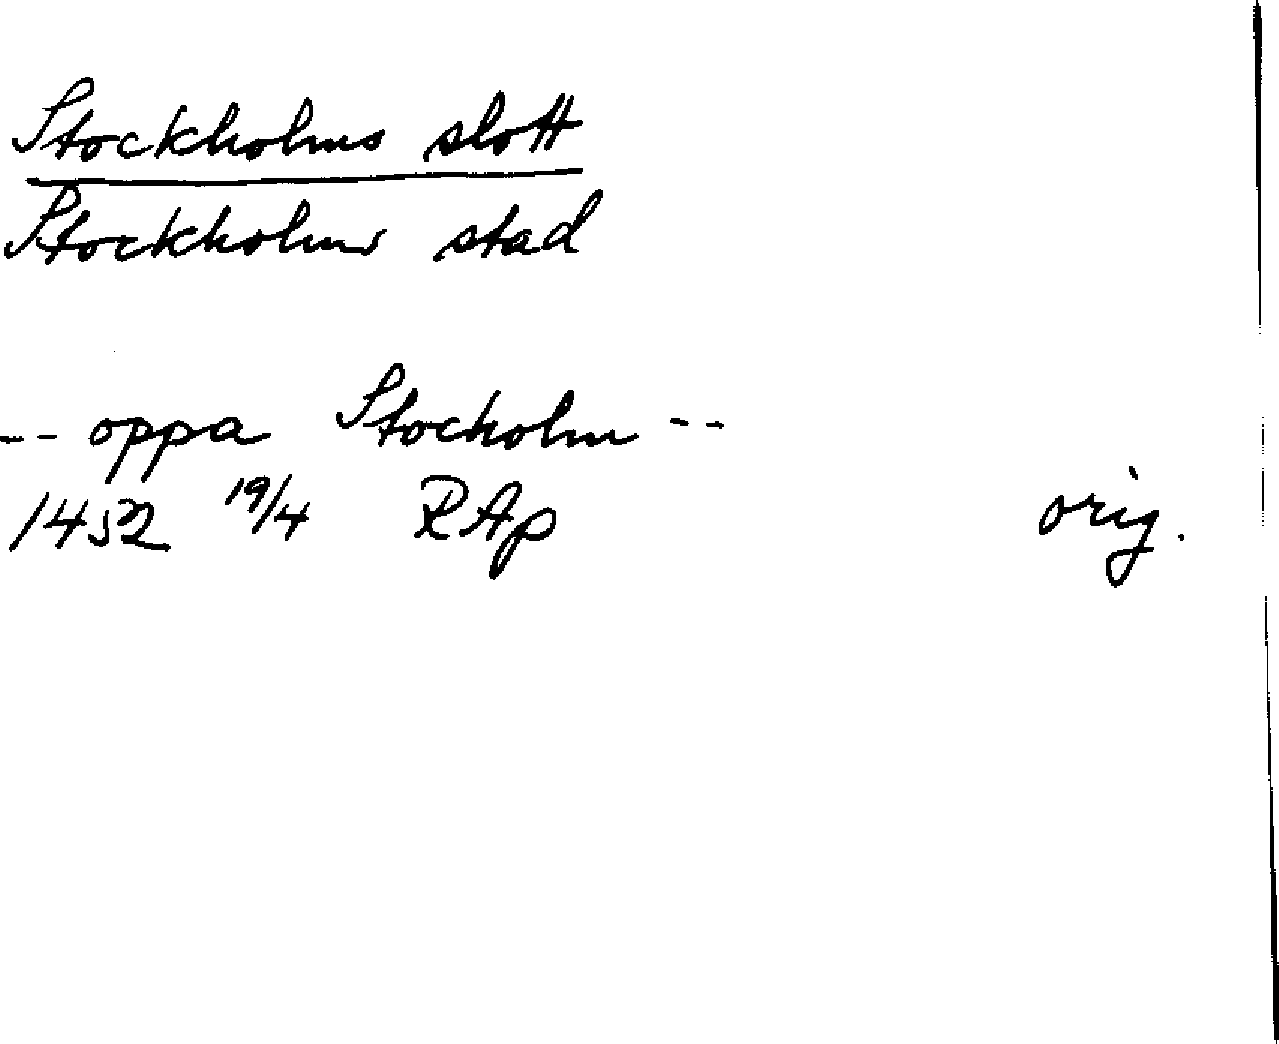 Stockholms slott
Stockholms stad
-- oppa Stockolm --
1452 19/4 RAp orig.